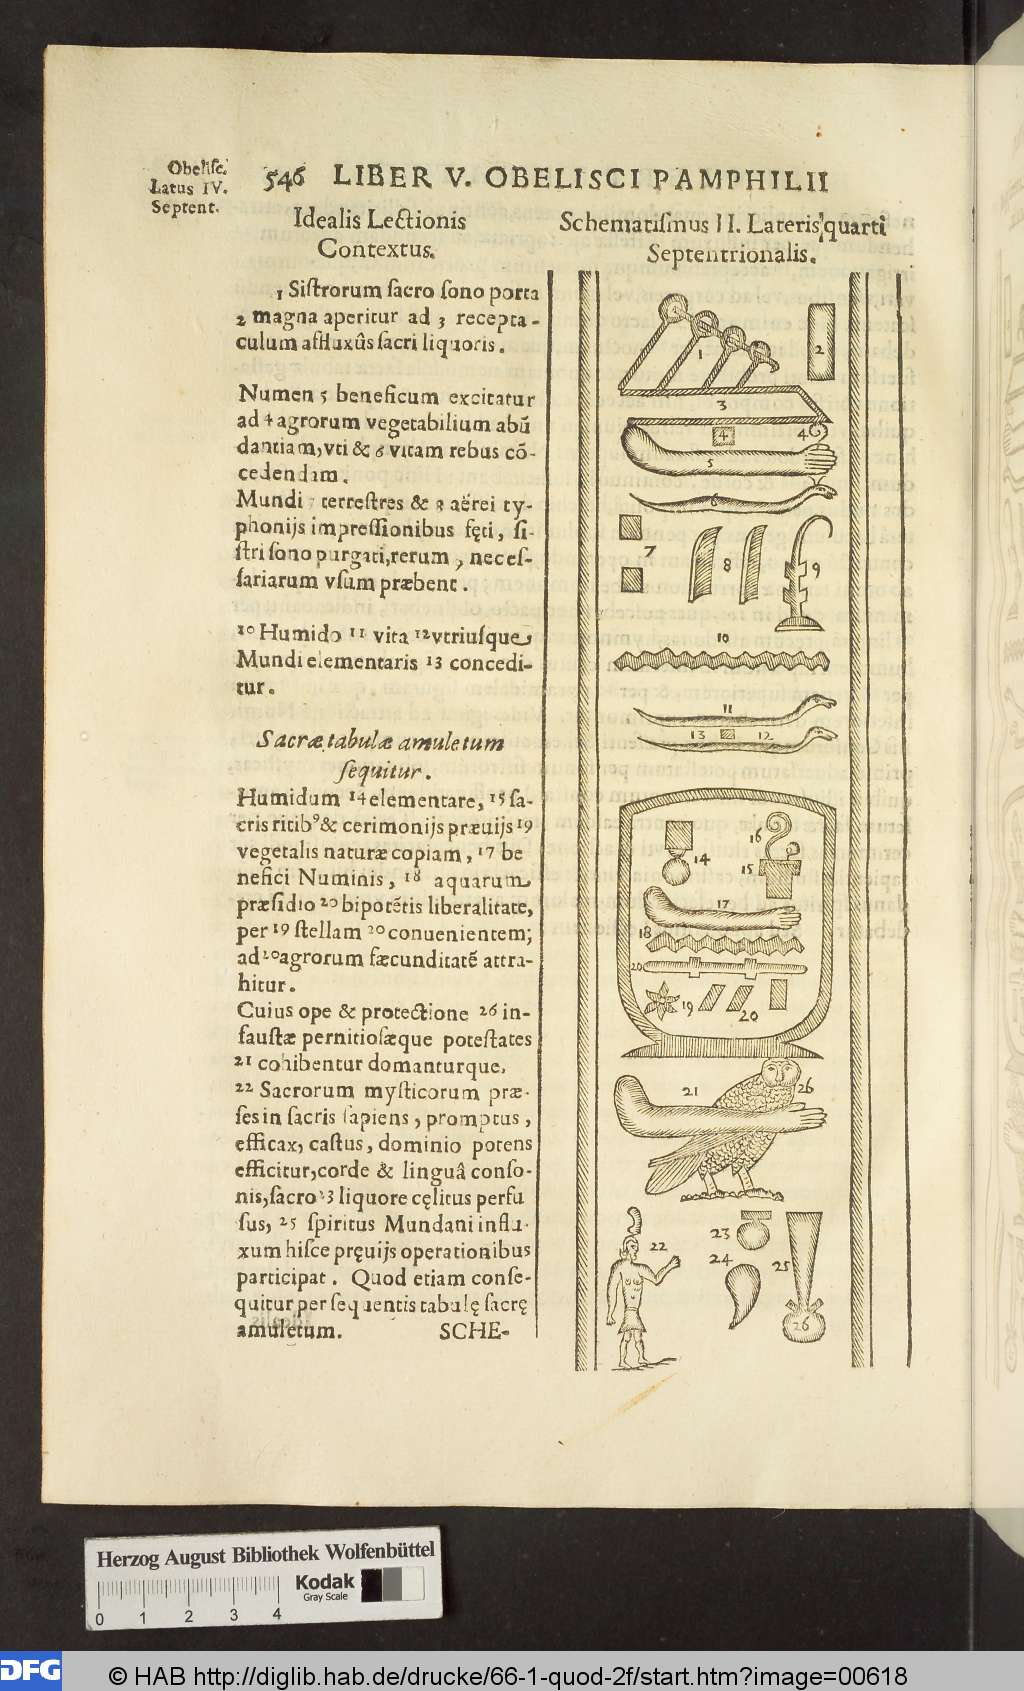 Obelisc.
Latus IV.
Septent.
546 LIBER V. OBELISCI PAMPHILII
Idealis Lectionis
Contextus.
1 Siſtrorum ſacro ſono porta
2 magna aperitur ad 3 recepta-
culum affluxûs ſacri liquoris.
Numen 5 beneficum excitatur
ad 4 agrorum vegetabilium abũ
dantiam, vti & 6 vitam rebus cõ-
cedendam.
Mundi 7 terreſtres & 8 aërei ty-
phonijs impreſſionibus fęti, ſi-
ſtri ſono purgati, rerum, neceſ-
ſariarum vſum præbent.
10 Humido 11 vita 12 vtriuſque
Mundi elementaris 13 concedi-
tur.
Sacræ tabulæ amuletum
ſequitur.
Humidum 14 elementare, 15 ſa-
cris ritibꝰ & cerimonijs præuijs 19
vegetalis naturæ copiam, 17 be
nefici Numinis, 18 aquarum
præſidio 20 bipotẽtis liberalitate,
per 19 ſtellam 20 conuenientem;
ad 20 agrorum fæcunditatẽ attra-
hitur.
Cuius ope & protectione 26 in-
fauſtæ pernitioſæque poteſtates
21 cohibentur domanturque.
22 Sacrorum myſticorum præ-
ſes in ſacris ſapiens, promptus,
efficax, caſtus, dominio potens
efficitur, corde & linguâ conſo-
nis, ſacro 23 liquore cęlitus perfu
ſus, 25 ſpiritus Mundani influ-
xum hiſce pręuijs operationibus
participat. Quod etiam conſe-
quitur per ſequentis tabulę ſacrę
amuletum. SCHE-
Schematiſmus II. Lateris quarti
Septentrionalis.
1
2
3
4
4
5
6
7
8
9
10
11
13
12
14
16
15
17
18
20
19
20
21
26
22
23
24
25
26
Herzog August Bibliothek Wolfenbüttel
Kodak
Gray Scale
0 1 2 3 4
DFG © HAB http://diglib.hab.de/drucke/66-1-quod-2f/start.htm?image=00618